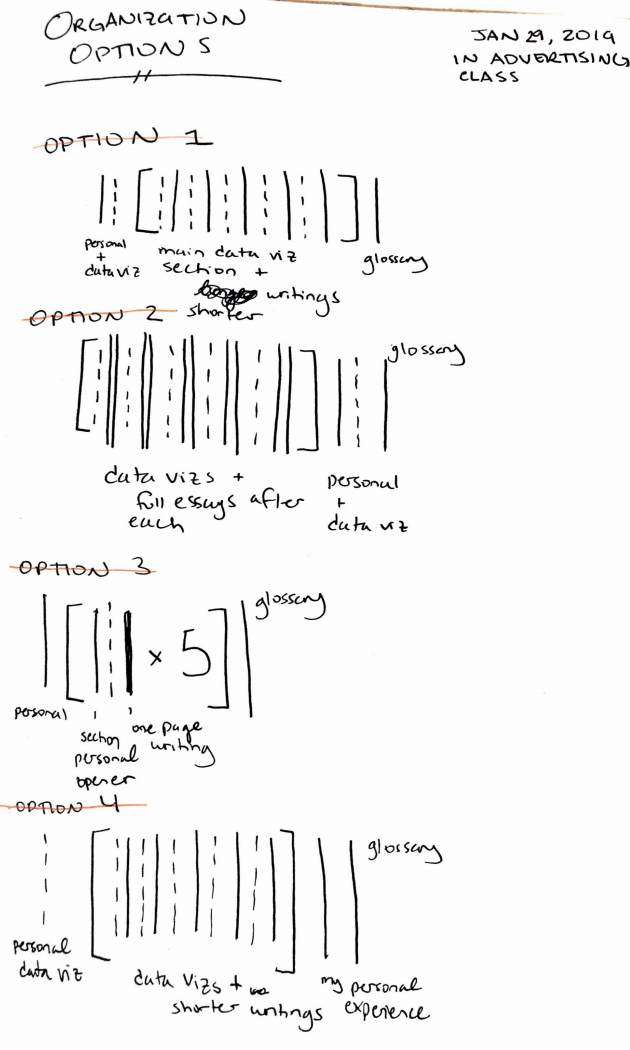 ORGANIZATION
OPTIONS
JAN 29, 2019
IN ADVERTISING
CLASS
OPTION 1
personal
+
data viz
main data viz
section +
shorter writings
glossary
OPTION 2
glossary
data vizs +
full essays after
each
personal
+
data viz
OPTION 3
glossary
× 5
personal
section
personal
opener
one page
writing
OPTION 4
glossary
personal
data viz
data vizs +
shorter writings
my personal
experience